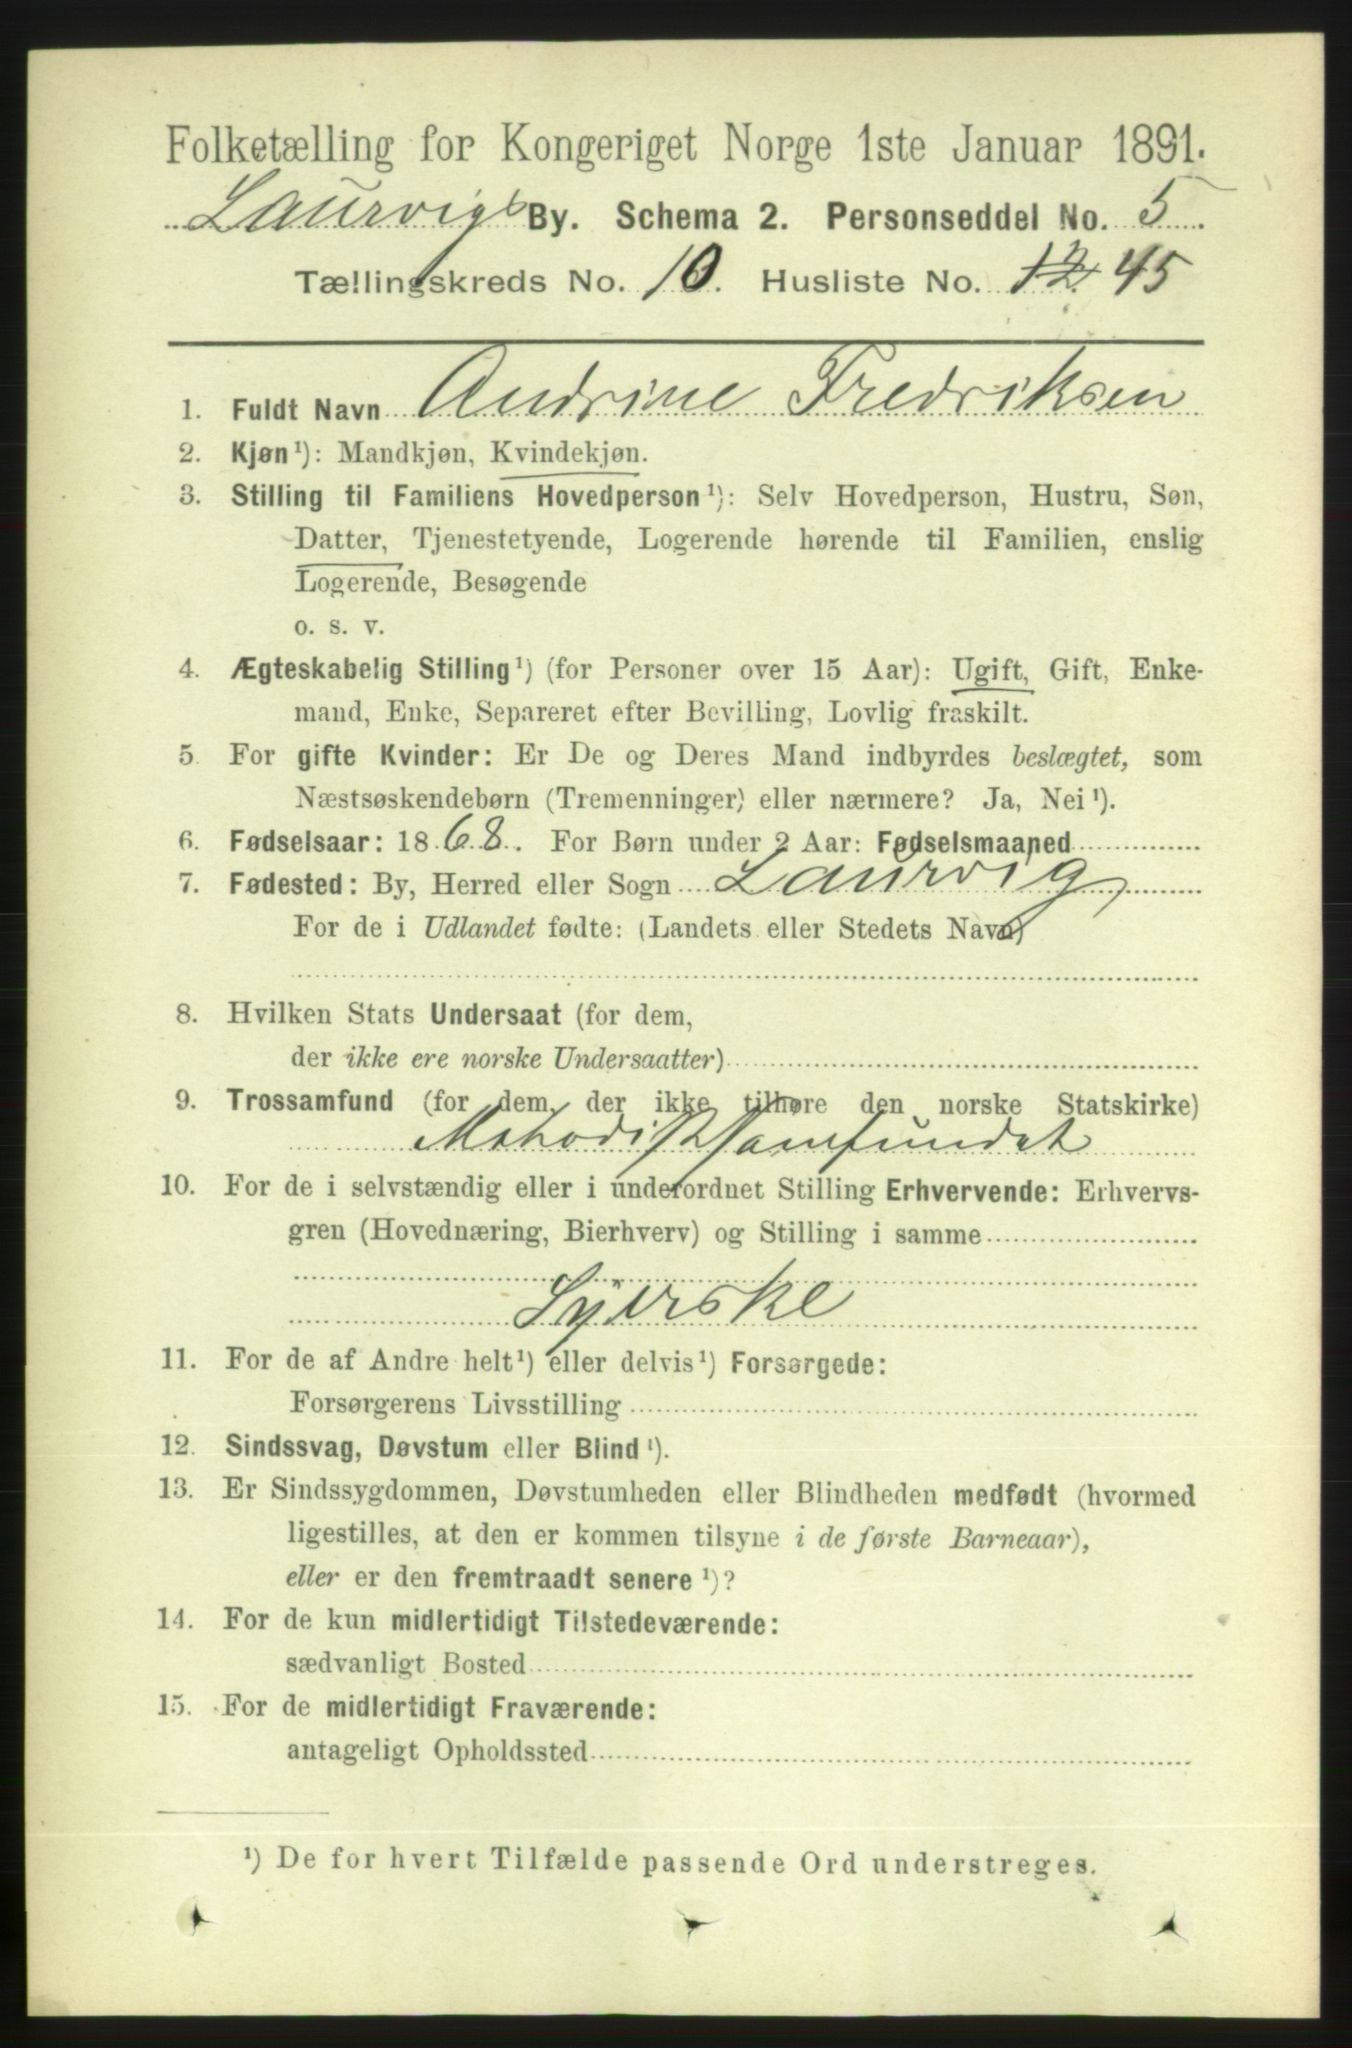 Folketælling for Kongeriget Norge 1ste Januar 1891.
Laurvigs By. Schema 2. Personseddel No. 5.
Tællingskreds No. 10. Husliste No. 12 45
1. Fuldt Navn Andrine Fredriksen
2. Kjøn ¹): Mandkjøn, Kvindekjøn.
3. Stilling til Familiens Hovedperson ¹): Selv Hovedperson, Hustru, Søn,
Datter, Tjenestetyende, Logerende hørende til Familien, enslig
Logerende, Besøgende
o. s. v.
4. Ægteskabelig Stilling ¹) (for Personer over 15 Aar): Ugift, Gift, Enke-
mand, Enke, Separeret efter Bevilling, Lovlig fraskilt.
5. For gifte Kvinder: Er De og Deres Mand indbyrdes beslægtet, som
Næstsøskendebørn (Tremenninger) eller nærmere? Ja, Nei ¹).
6. Fødselsaar: 1868. For Børn under 2 Aar: Fødselsmaaned
7. Fødested: By, Herred eller Sogn Laurvig
For de i Udlandet fødte: (Landets eller Stedets Navn)
8. Hvilken Stats Undersaat (for dem,
der ikke ere norske Undersaatter)
9. Trossamfund (for dem, der ikke tilhøre den norske Statskirke)
Methodistsamfundet
10. For de i selvstændig eller i underordnet Stilling Erhvervende: Erhvervs-
gren (Hovednæring, Bierhverv) og Stilling i samme
Syerske
11. For de af Andre helt ¹) eller delvis ¹) Forsørgede:
Forsørgerens Livsstilling
12. Sindssvag, Døvstum eller Blind ¹).
13. Er Sindssygdommen, Døvstumheden eller Blindheden medfødt (hvormed
ligestilles, at den er kommen tilsyne i de første Barneaar),
eller er den fremtraadt senere ¹)?
14. For de kun midlertidigt Tilstedeværende:
sædvanligt Bosted
15. For de midlertidigt Fraværende:
antageligt Opholdssted
¹) De for hvert Tilfælde passende Ord understreges.